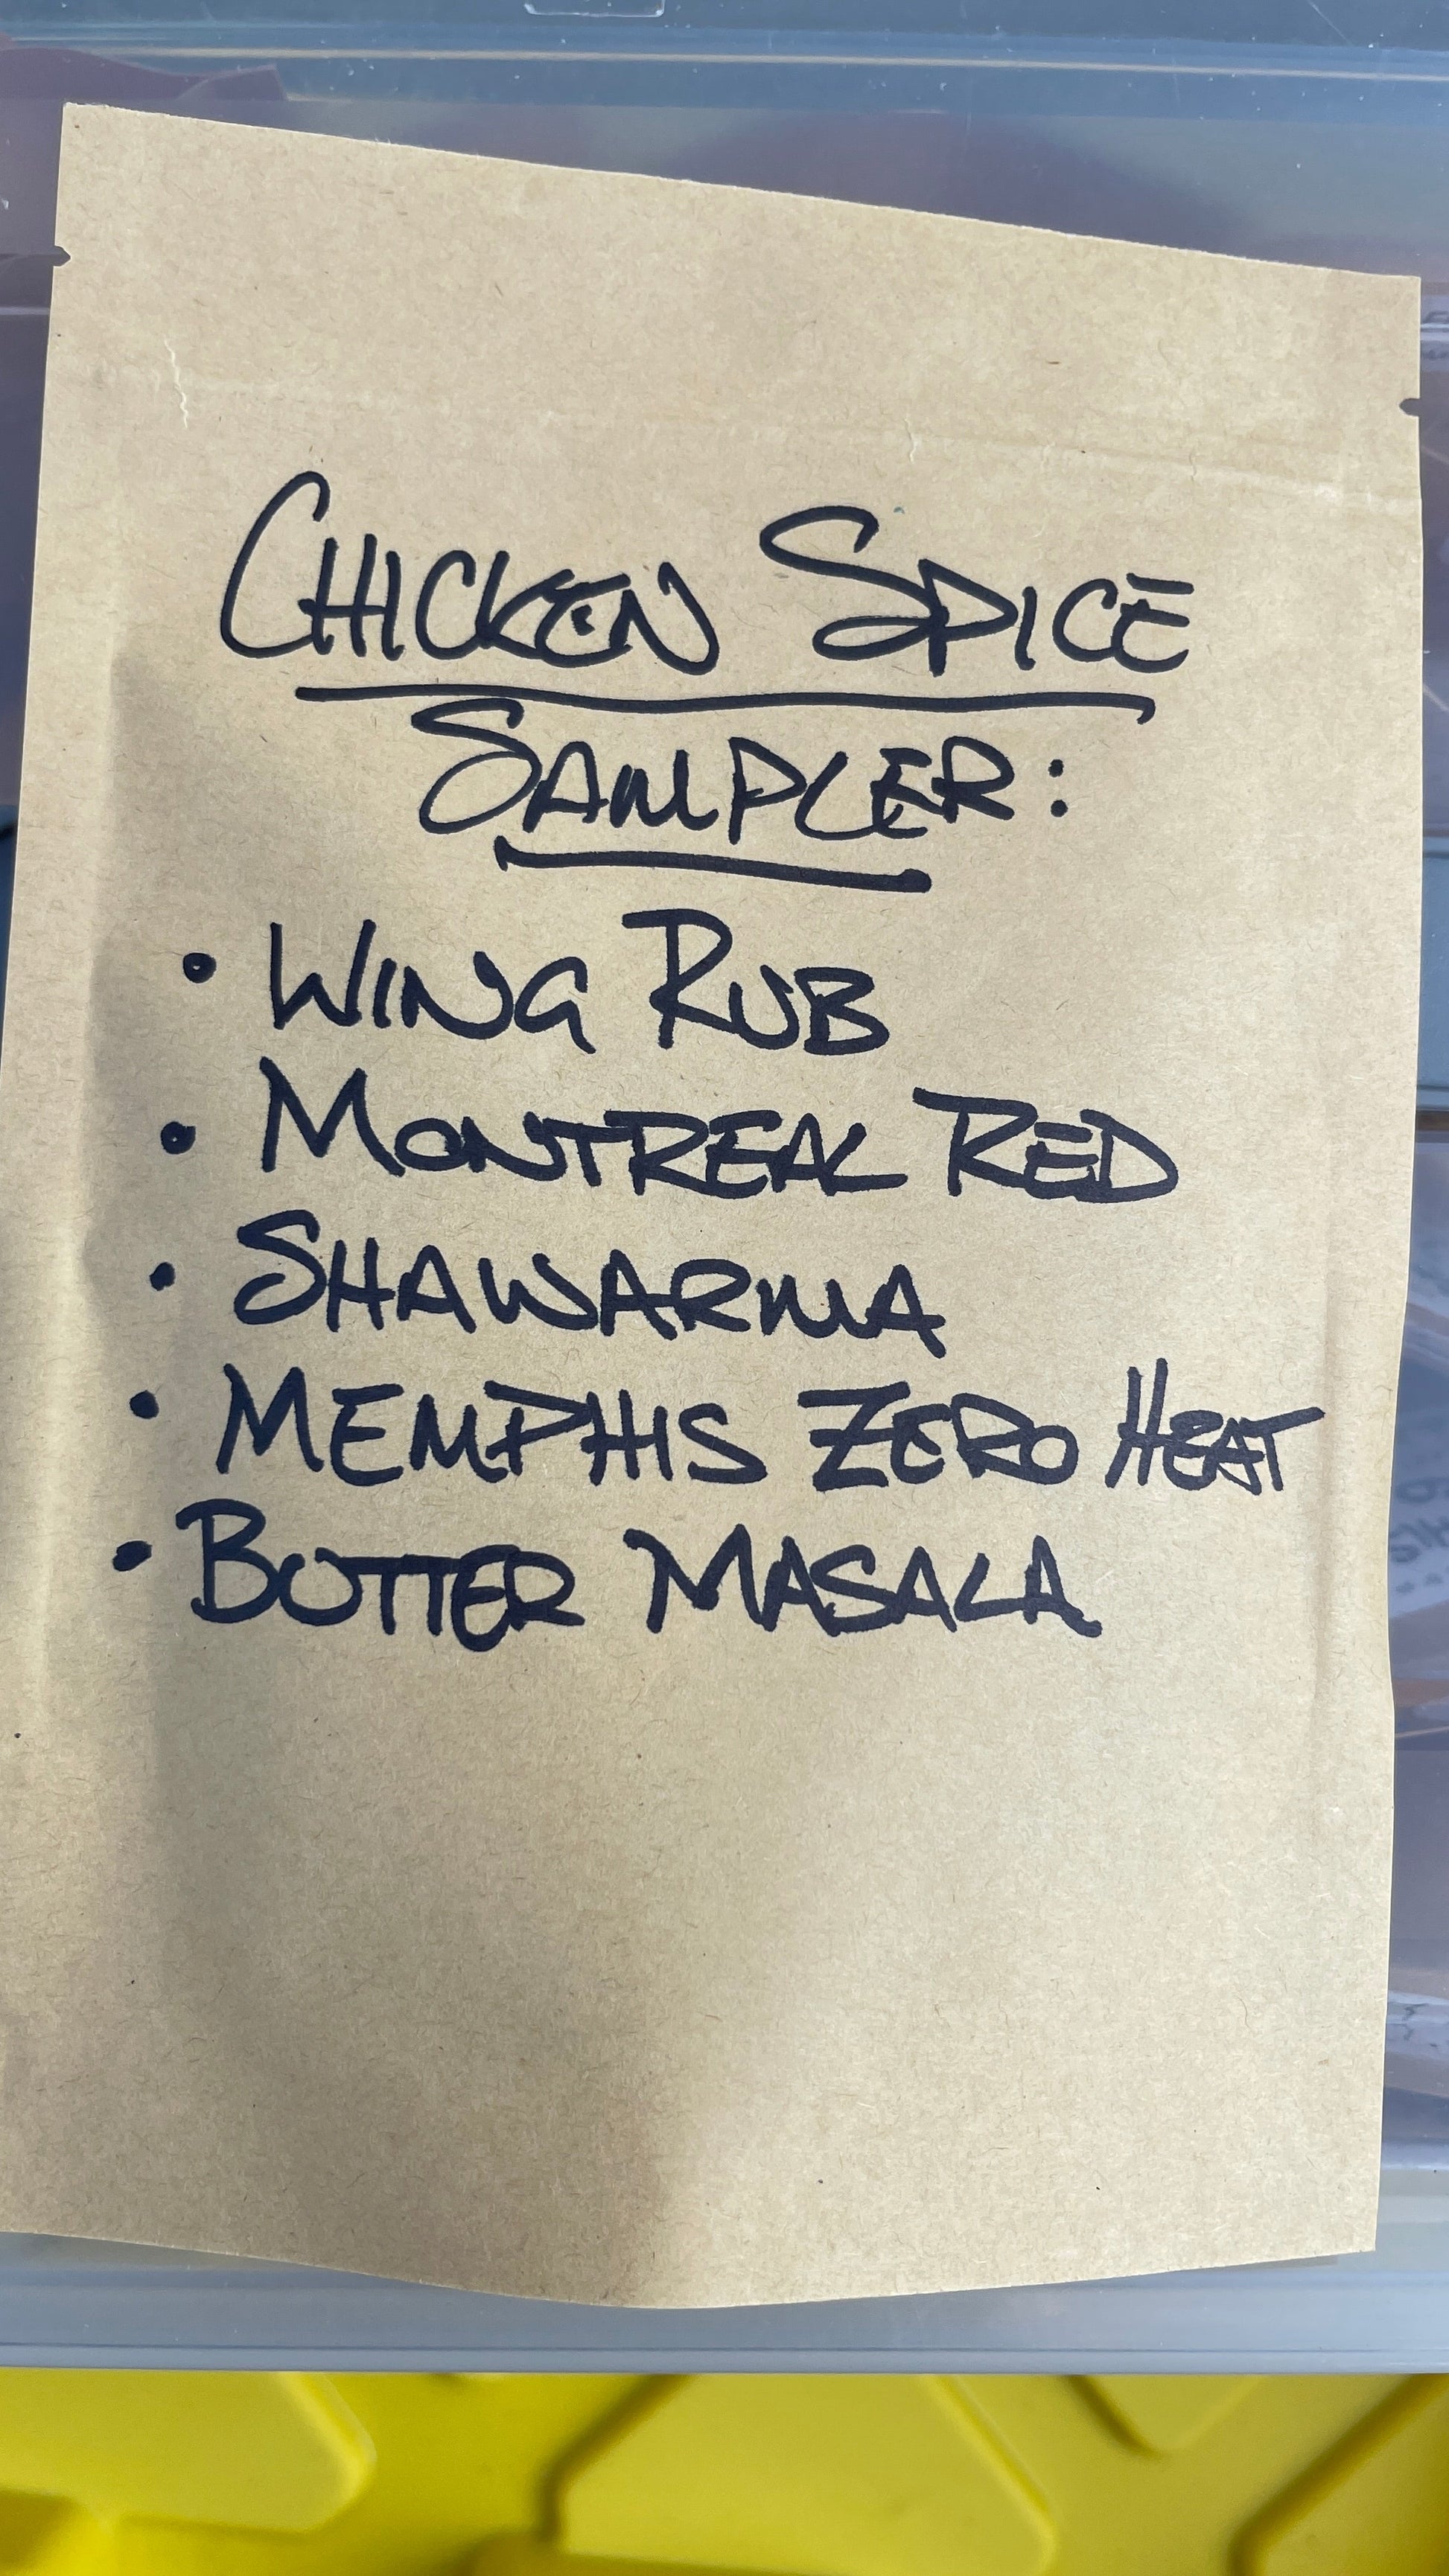 CHICKEN SPICE
SAMPLER:
• WING RUB
• MONTREAL RED
• SHAWARMA
• MEMPHIS ZERO HEAT
• BUTTER MASALA